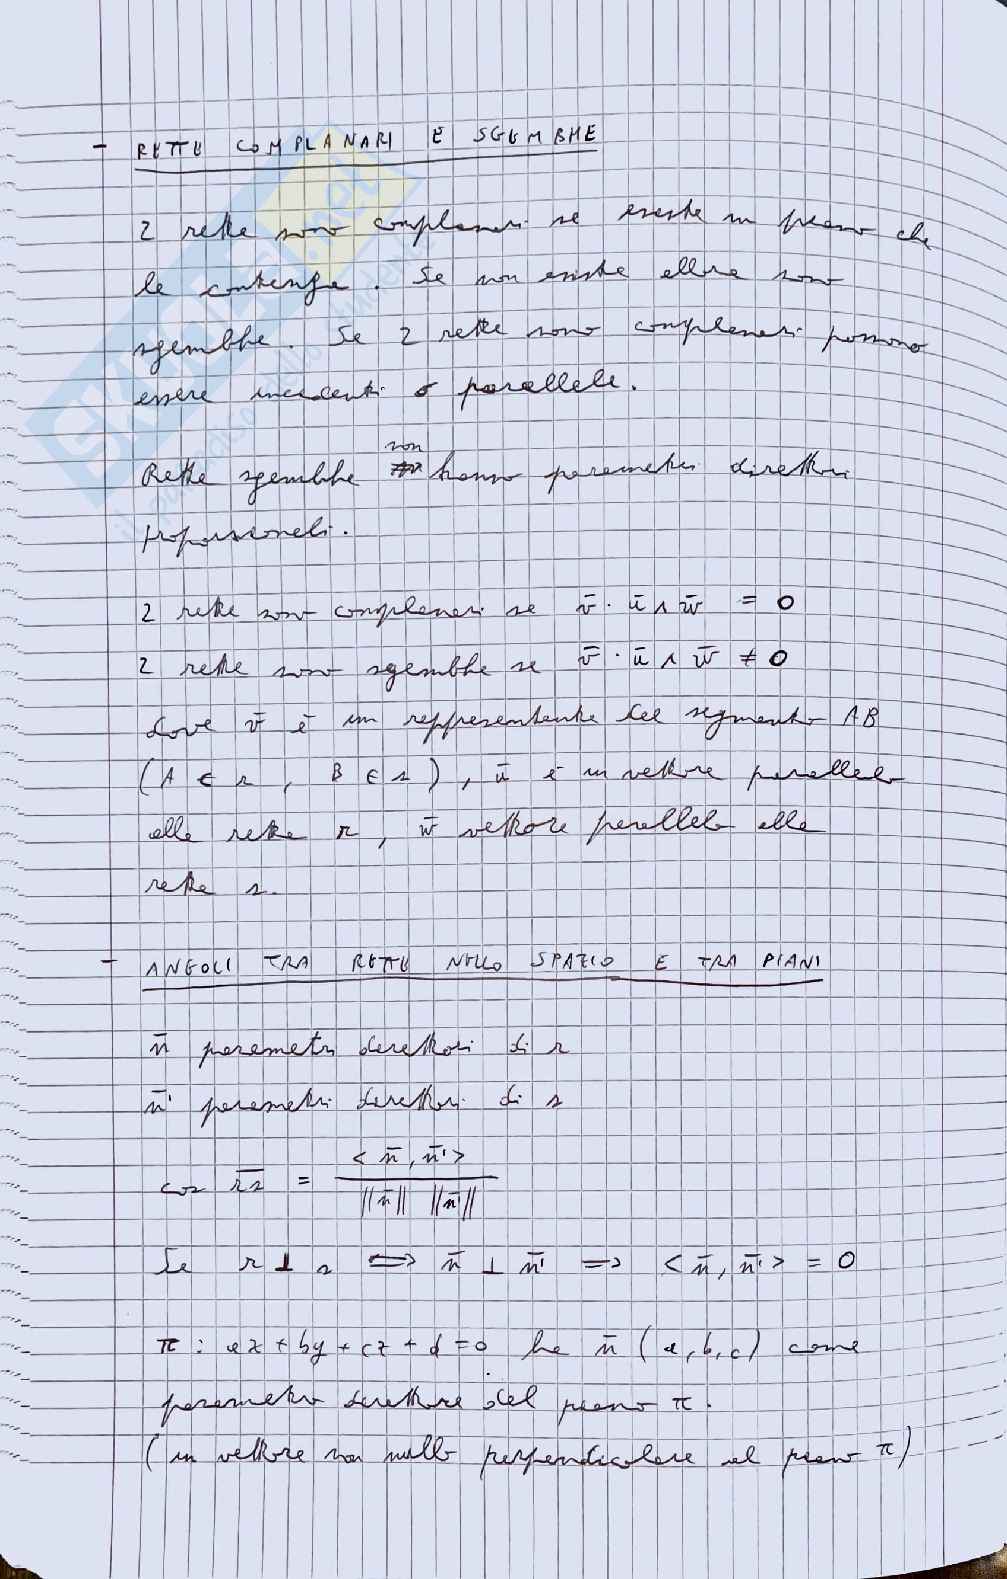 - RETTE COMPLANARI E SGEMBHE
2 rette sono complanari se esiste un piano che
le contenga. Se non esiste allora sono
sgembhe. Se 2 rette sono complanari possono
essere incidenti o parallele.
non
Rette sgembhe hanno parametri direttori
proporzionali.
2 rette sono complanari se v̄ · ū ∧ w̄ = 0
2 rette sono sgembhe se v̄ · ū ∧ w̄ ≠ 0
dove v̄ è un rappresentante del segmento AB
(A ∈ r, B ∈ s), ū è un vettore parallelo
alla retta r, w̄ vettore parallelo alla
retta s.
- ANGOLI TRA RETTE NELLO SPAZIO E TRA PIANI
n̄ parametri direttori di r
n̄' parametri direttori di s
cos r̄s̄ = <n̄, n̄'> / ||n̄|| ||n̄'||
Se r ⊥ s ⟺ n̄ ⊥ n̄' ⟹ <n̄, n̄'> = 0
π: ax + by + cz + d = 0 ha n̄ (a, b, c) come
parametro direttore del piano π.
(un vettore non nullo perpendicolare al piano π)
SKUOLA.net